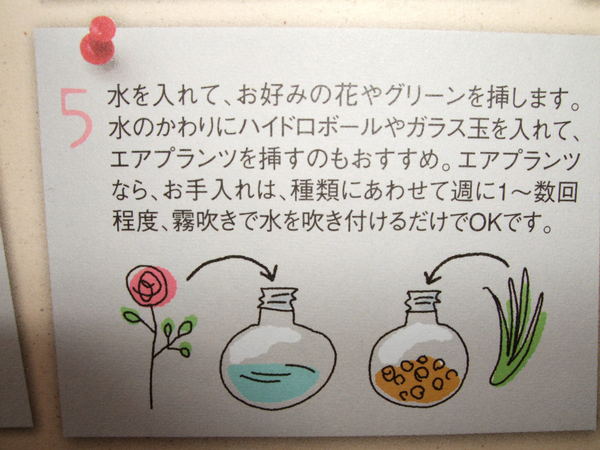 5
水を入れて、お好みの花やグリーンを挿します。
水のかわりにハイドロボールやガラス玉を入れて、
エアプランツを挿すのもおすすめ。エアプランツ
なら、お手入れは、種類にあわせて週に1〜数回
程度、霧吹きで水を吹き付けるだけでOKです。